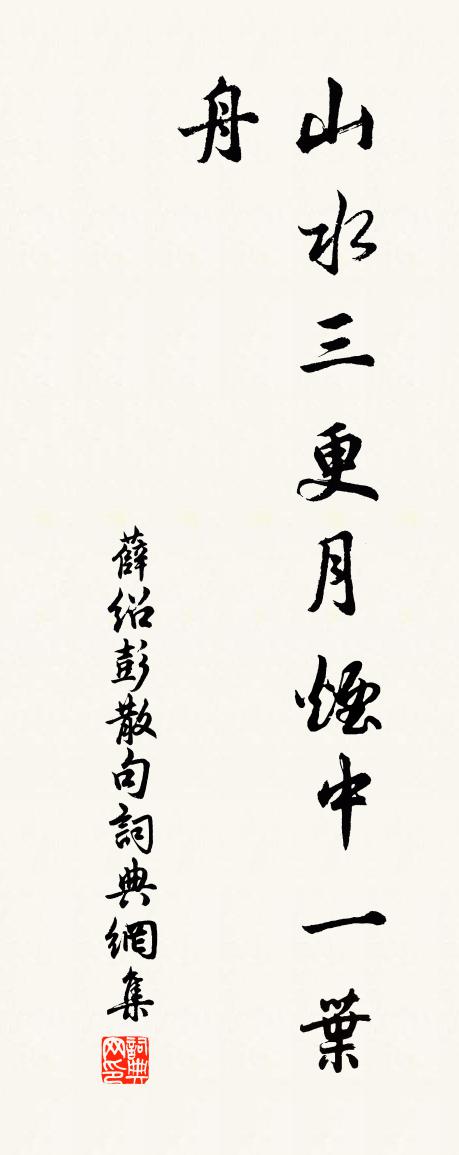 山水三更月煙中一葉
舟
薛紹彭散句詞典網集
詞典
网印